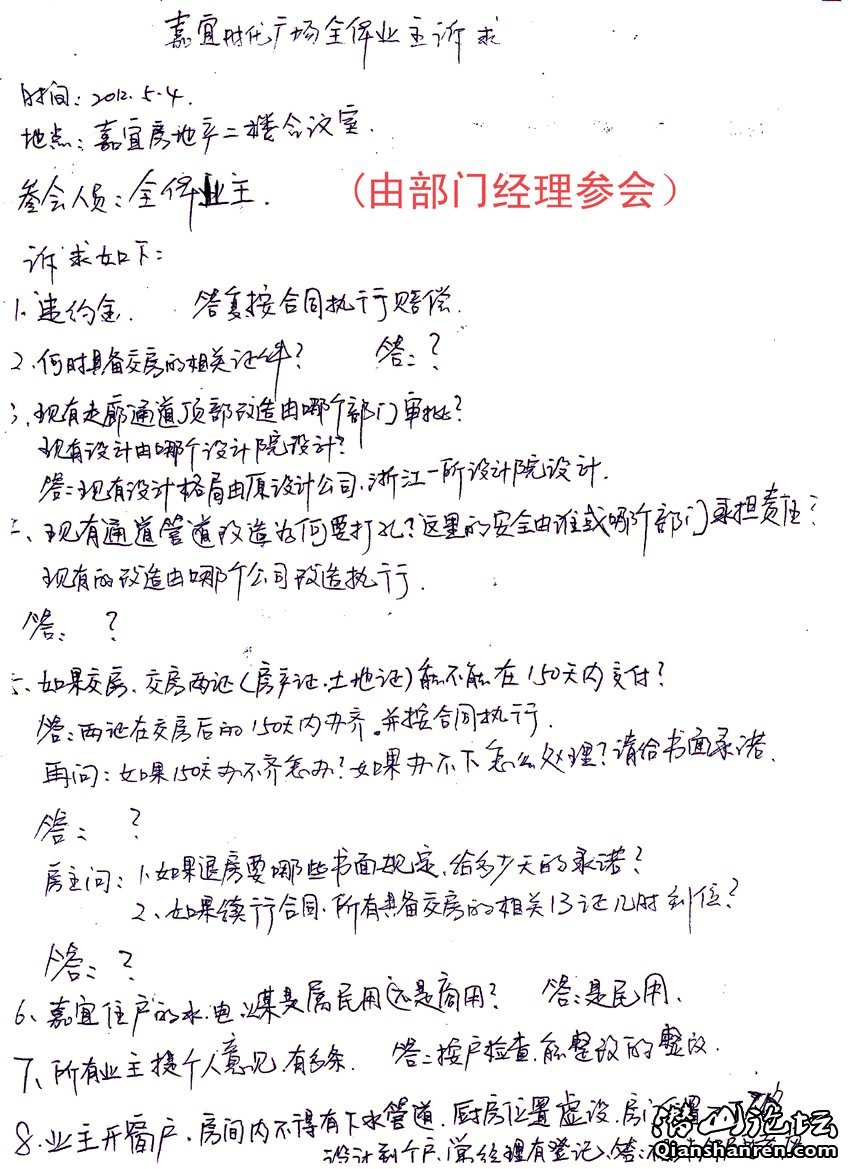 嘉宜时代广场全体业主诉求
时间：2012.5.4.
地点：嘉宜房地产二楼会议室.
参会人员：全体业主. （由部门经理参会）
诉求如下：
1、违约金. 答复按合同执行赔偿.
2、何时具备交房的相关证件？ 答：？
3、现有走廊通道顶部改造由哪个部门审批？
现有设计由哪个设计院设计？
答：现有设计格局由原设计公司.浙江一所设计院设计.
现有通道管道改造为何要打孔？这里的安全由谁或哪个部门承担责任？
现有的改造由哪个公司改造执行.
答： ？
如果交房.交房两证（房产证.土地证）能不能在150天内交付？
答：两证在交房后的150天内办齐.并按合同执行.
再问：如果150天办不齐怎办？如果办不下怎么处理？请给书面承诺.
答： ？
房主问：1.如果退房要哪些书面规定.给多少天的承诺？
2、如果续行合同.所有具备交房的相关13证几时到位？
答：？
6、嘉宜住户的水.电.煤是属民用还是商用？ 答：是民用.
7、所有业主提个人意见.有多条. 答：按户检查.能整改的整改.
8.业主开窗户.房间内不得有下水管道.厨房位置虚设.房门
设计到个户.常经理有登记.答：
潜山论坛
Qianshanren.com